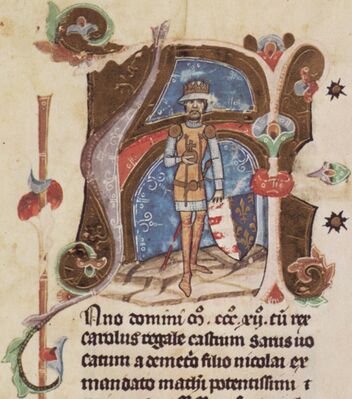 Anno domini mͦ. cccͦ. xij. cū rex
carolus regale castrum sarus uo
catum a demetͥo filio nicolai ex
mandato mathi potentissimi ⁊